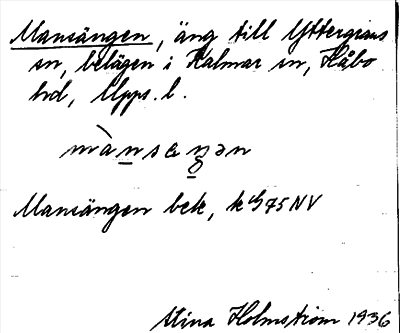 Mansängen, äng till Yttergrans
sn, belägen i Kalmar sn, Håbo
hd, Upps. l.
Mansängen bek,
Stina Holmström 1936